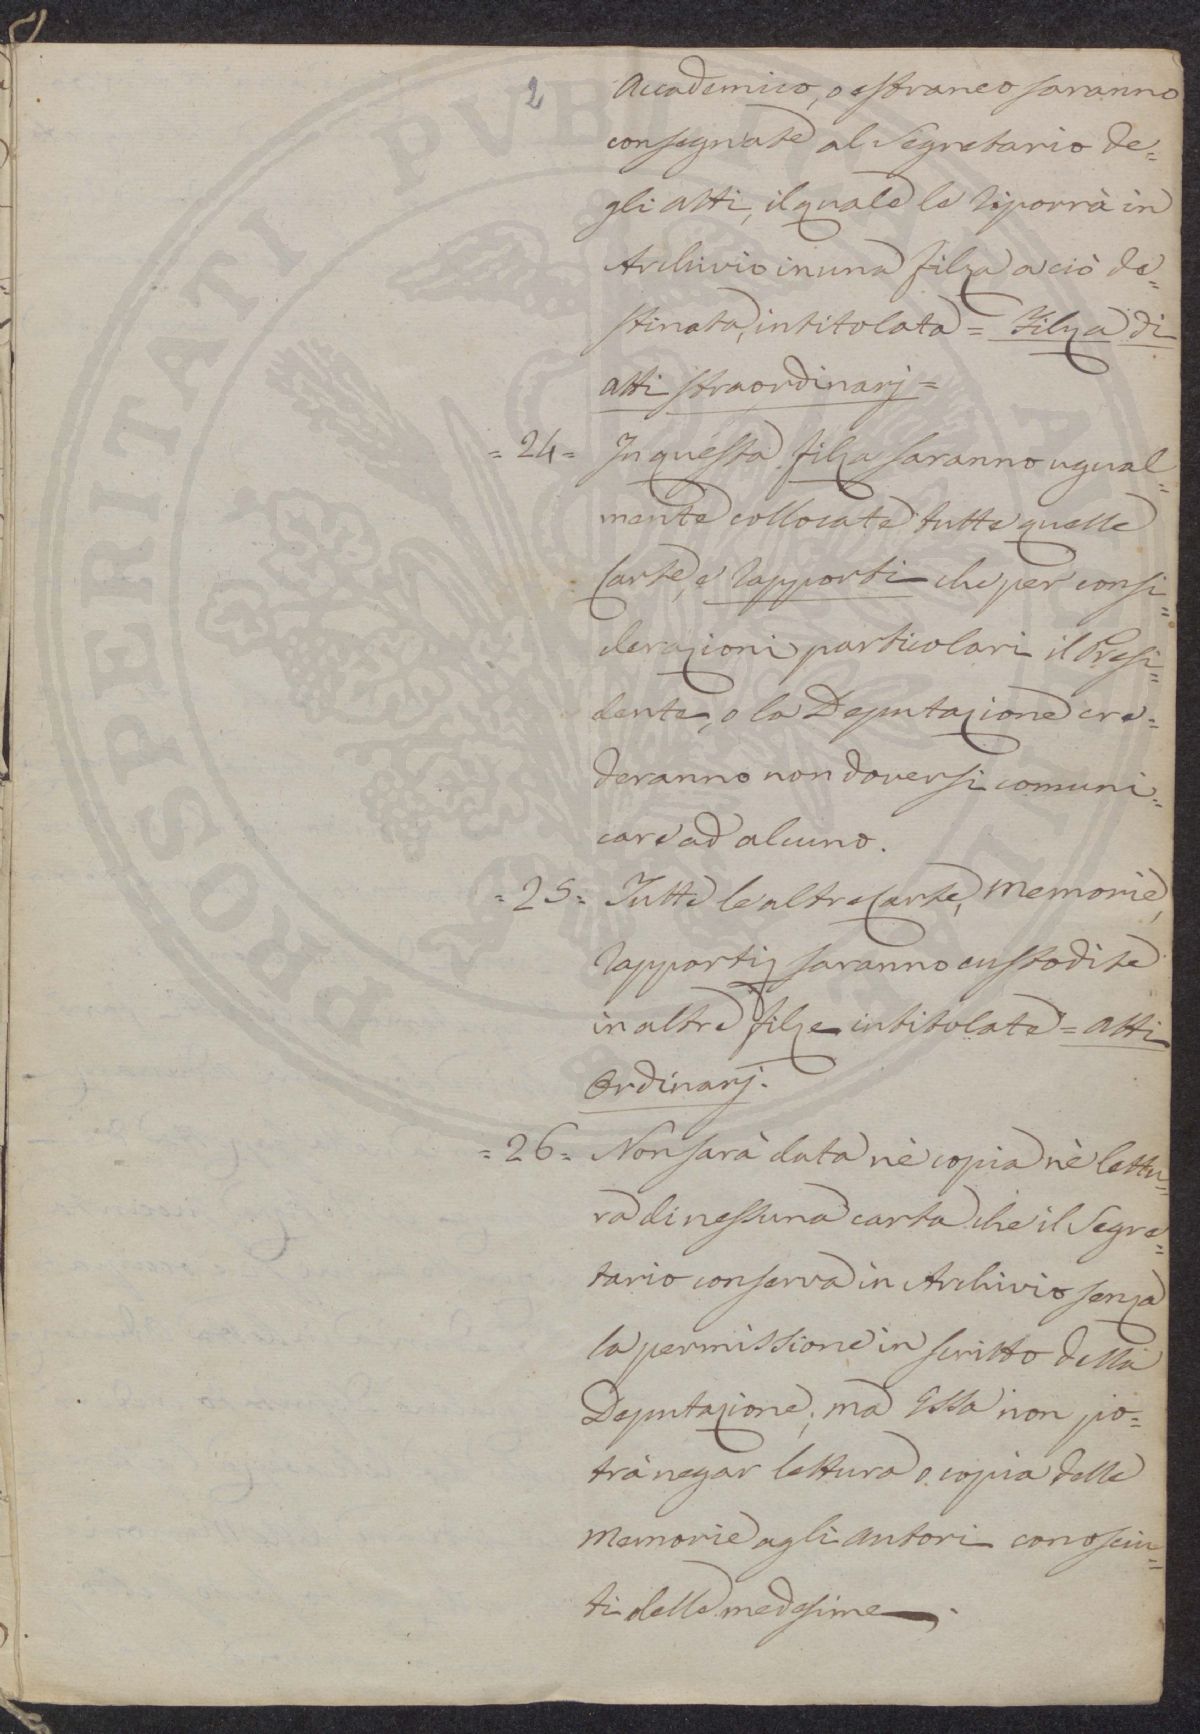 2
Accademico, o estraneo saranno
consegnate al Segretario de=
gli atti, il quale le riporrà in
Archivio in una filza a ciò de=
stinata, intitolata = Filza di
atti straordinarj =
= 24 = In questa filza saranno ugual=
mente collocate tutte quelle
Carte, e rapporti che per consi=
derazioni particolari il Presi=
dente, o la Deputazione cre=
deranno non doversi comuni=
care ad alcuno.
= 25 = Tutte le altre Carte, Memorie,
rapporti saranno custodite
in altre filze intitolate = atti
Ordinarj.
= 26 = Non sarà data nè copia nè lettu=
ra di nessuna carta che il Segre=
tario conserva in Archivio senza
la permissione in scritto della
Deputazione; ma Essa non po=
trà negar lettura o copia delle
Memorie agli Autori conosciu=
ti delle medesime.
PROSPERITATI PVBLICAE AVGENDAE